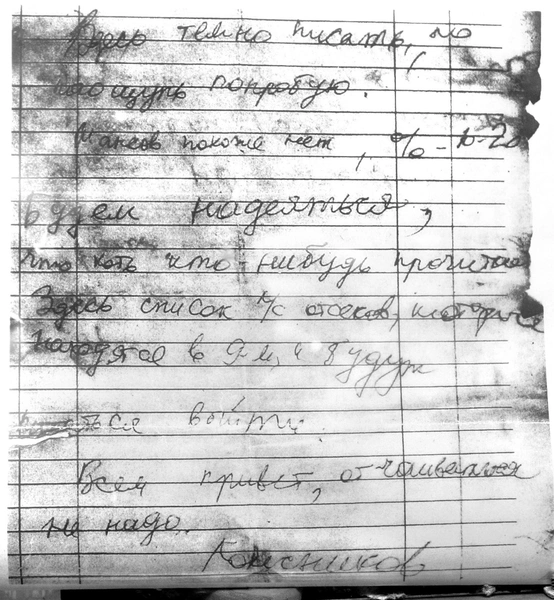 Здесь темно писать, но
наощупь попробую.
Шансов похоже нет, % - 10-20
Будем надеяться,
что хоть кто-нибудь прочитает
Здесь список л/с отсеков, которые
находятся в 9-м и будут
пытаться выйти.
Всем привет, отчаиваться
не надо.
Колесников